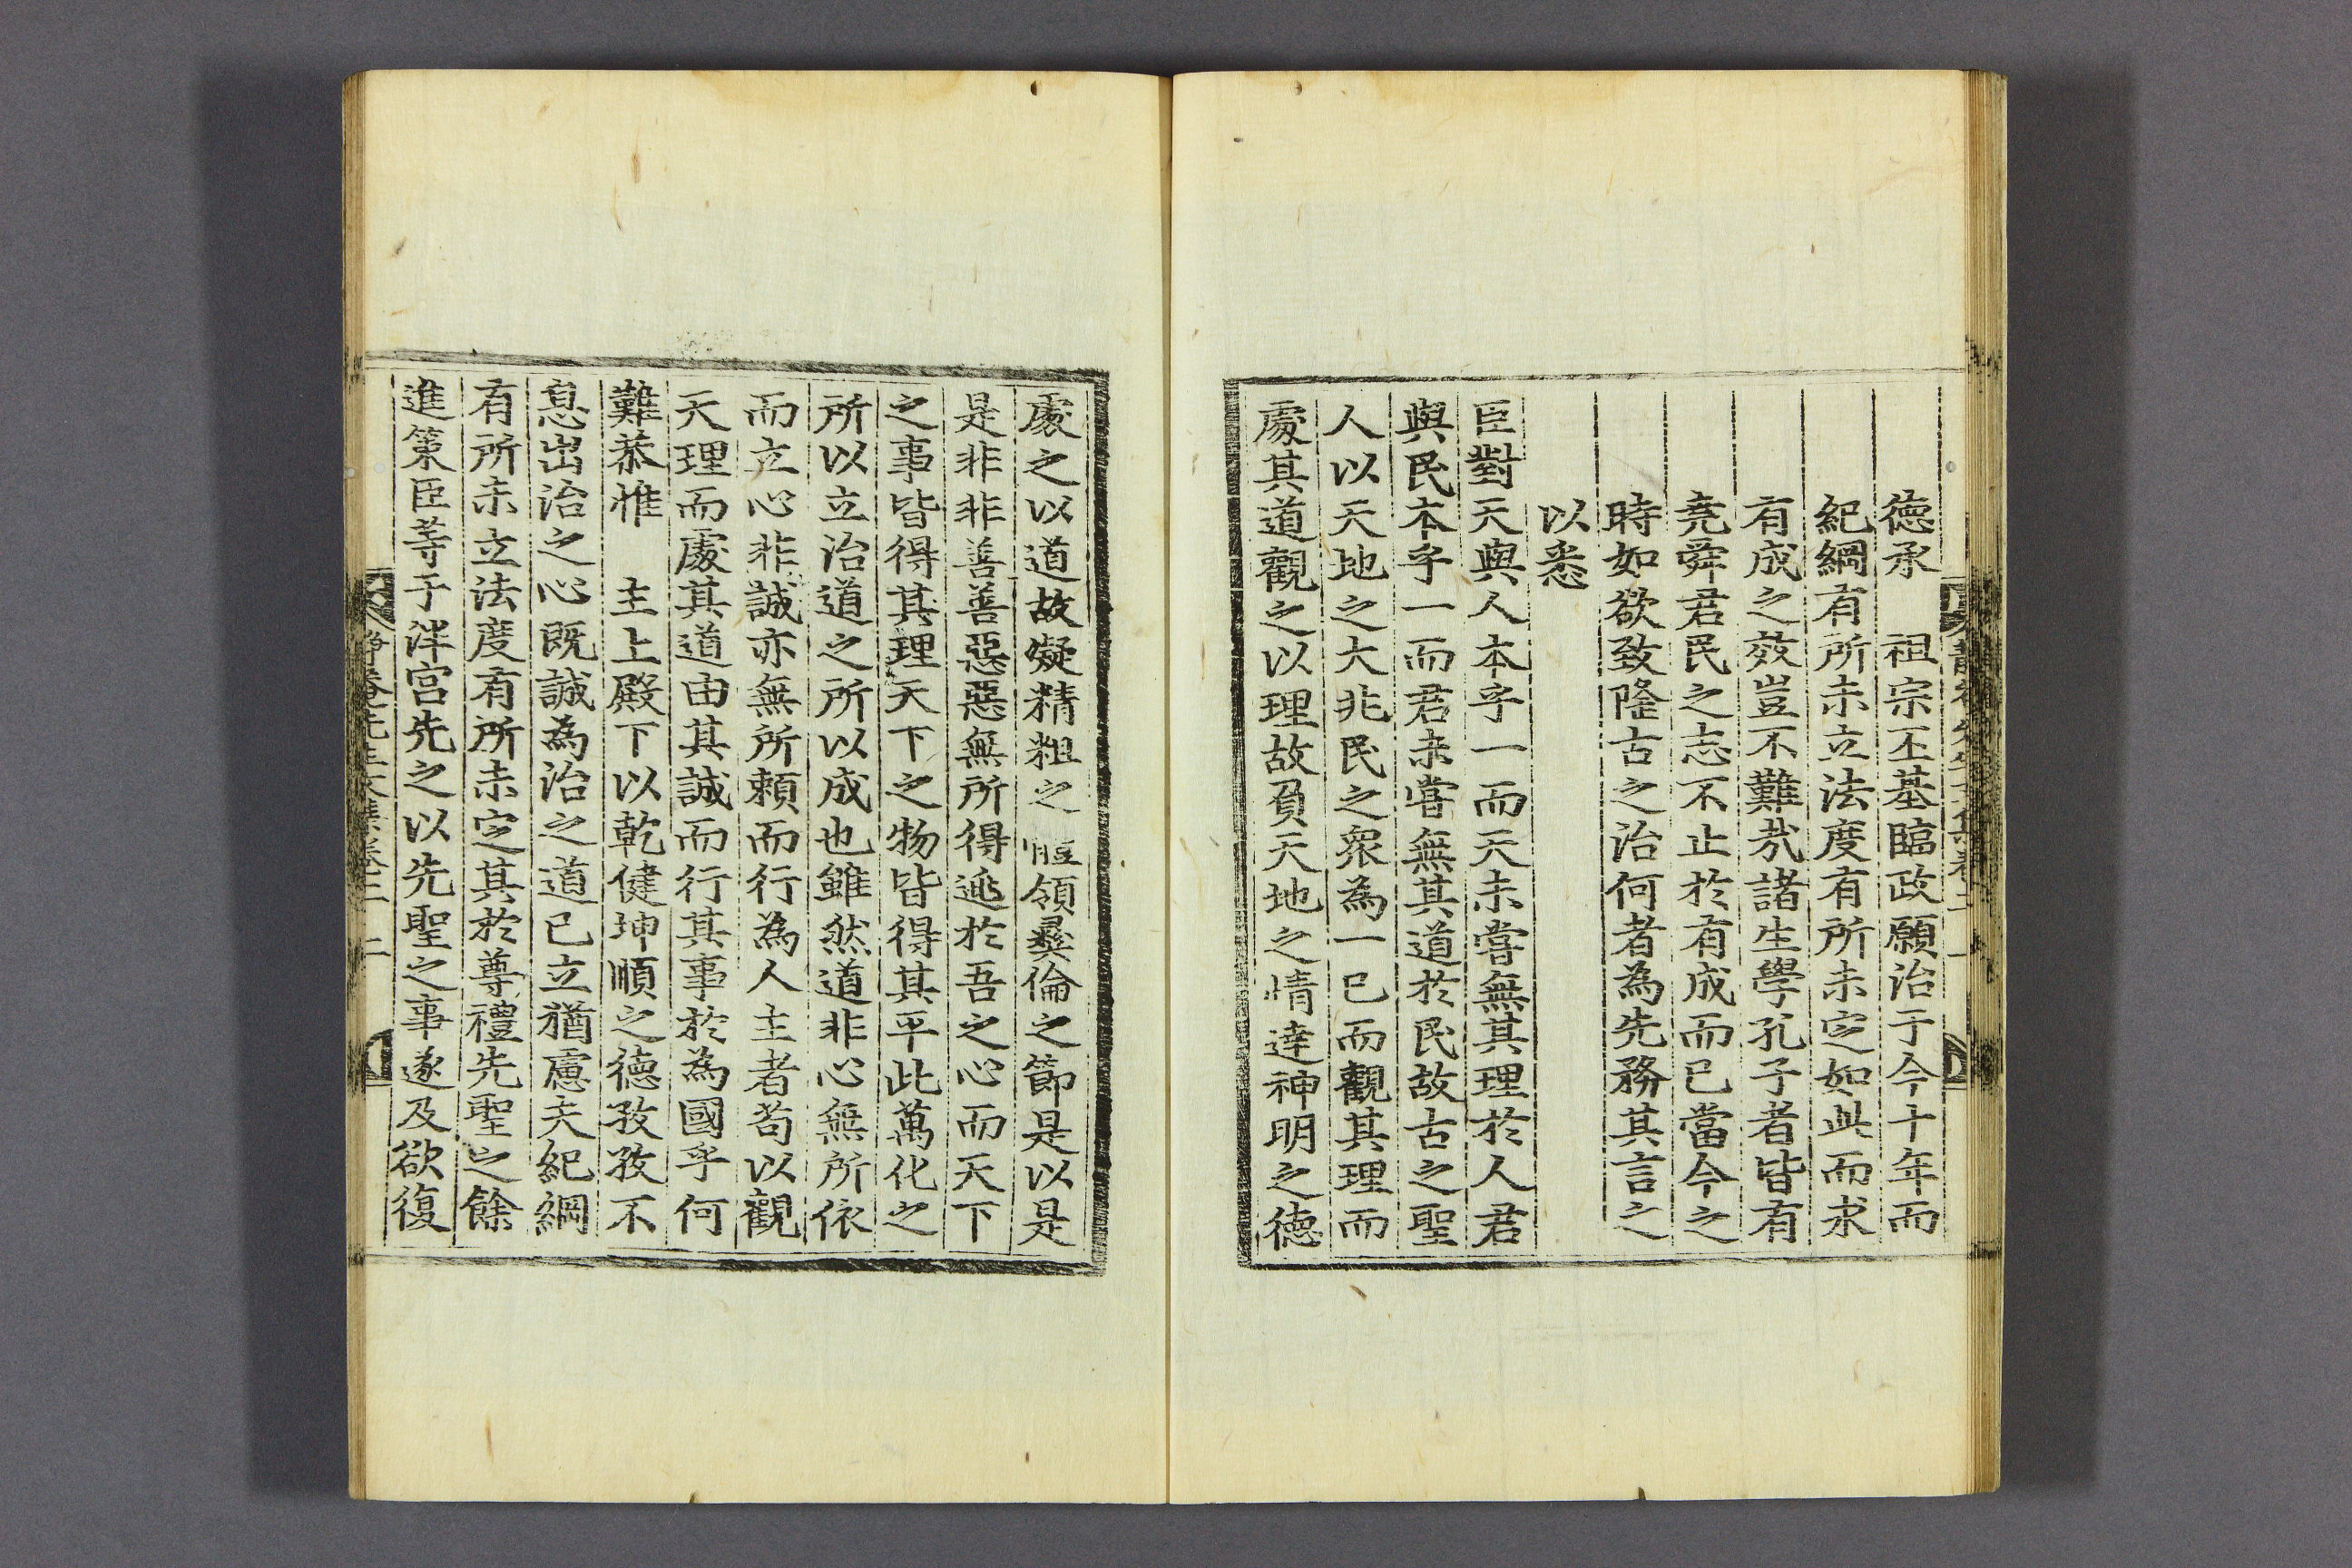 德承　祖宗丕基臨政願治于今十年而
紀綱有所未立法度有所未定如此而求
有成之效豈不難㢤諸生學孔子者皆有
堯舜君民之志不止於有成而已當今之
時如欲致隆古之治何者為先務其言之
以悉
臣對天與人本乎一而天未嘗無其理於人君
與民本乎一而君未嘗無其道於民故古之聖
人以天地之大兆民之衆為一己而觀其理而
處其道觀之以理故負天地之情達神明之德
處之以道故凝精粗之體領彛倫之節是以是
是非非善善惡惡無所得逃於吾之心而天下
之事皆得其理天下之物皆得其平此萬化之
所以立治道之所以成也雖然道非心無所依
而立心非誠亦無所賴而行為人主者苟以觀
天理而處其道由其誠而行其事於為國乎何
難恭惟　主上殿下以乾健坤順之德孜孜不
息出治之心既誠為治之道已立猶慮夫紀綱
有所未立法度有所未定其於尊禮先聖之餘
進策臣等于泮宮先之以先聖之事遂及欲復
靜菴先生文集卷之二　二